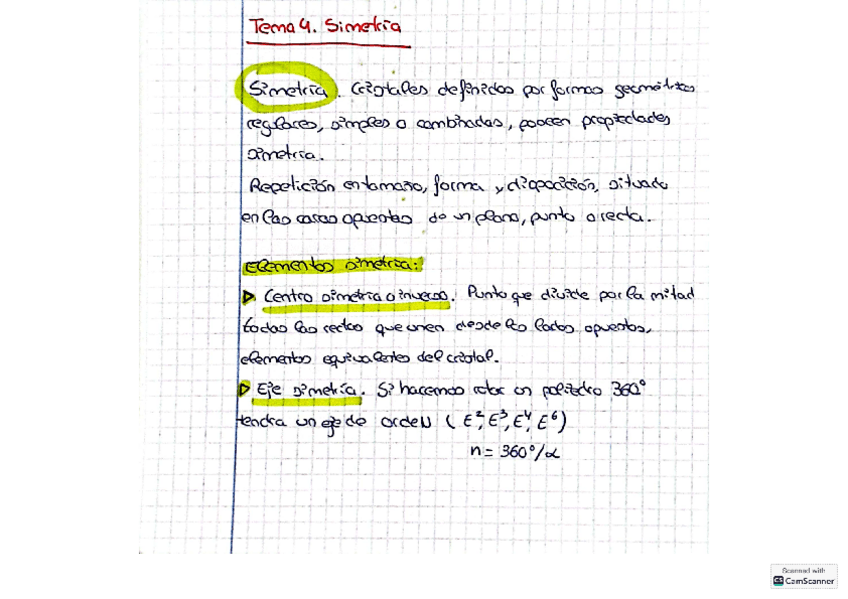 Tema 4. Simetría
Simetría. Cristales definidos por formas geométricas
regulares, simples o combinadas, poseen propiedades
simetría.
Repetición en tamaño, forma y disposición, situado
en las caras opuestas de un plano, punto o recta.
Elementos simetría:
Centro simetría o inverso. Punto que divide por la mitad
todas las rectas que unen desde los lados opuestos,
elementos equivalentes del cristal.
Eje simetría. Si hacemos rotar un poliedro 360°
tendra un eje de orden (E², E³, E⁴, E⁶)
n = 360°/α
Scanned with
CS CamScanner